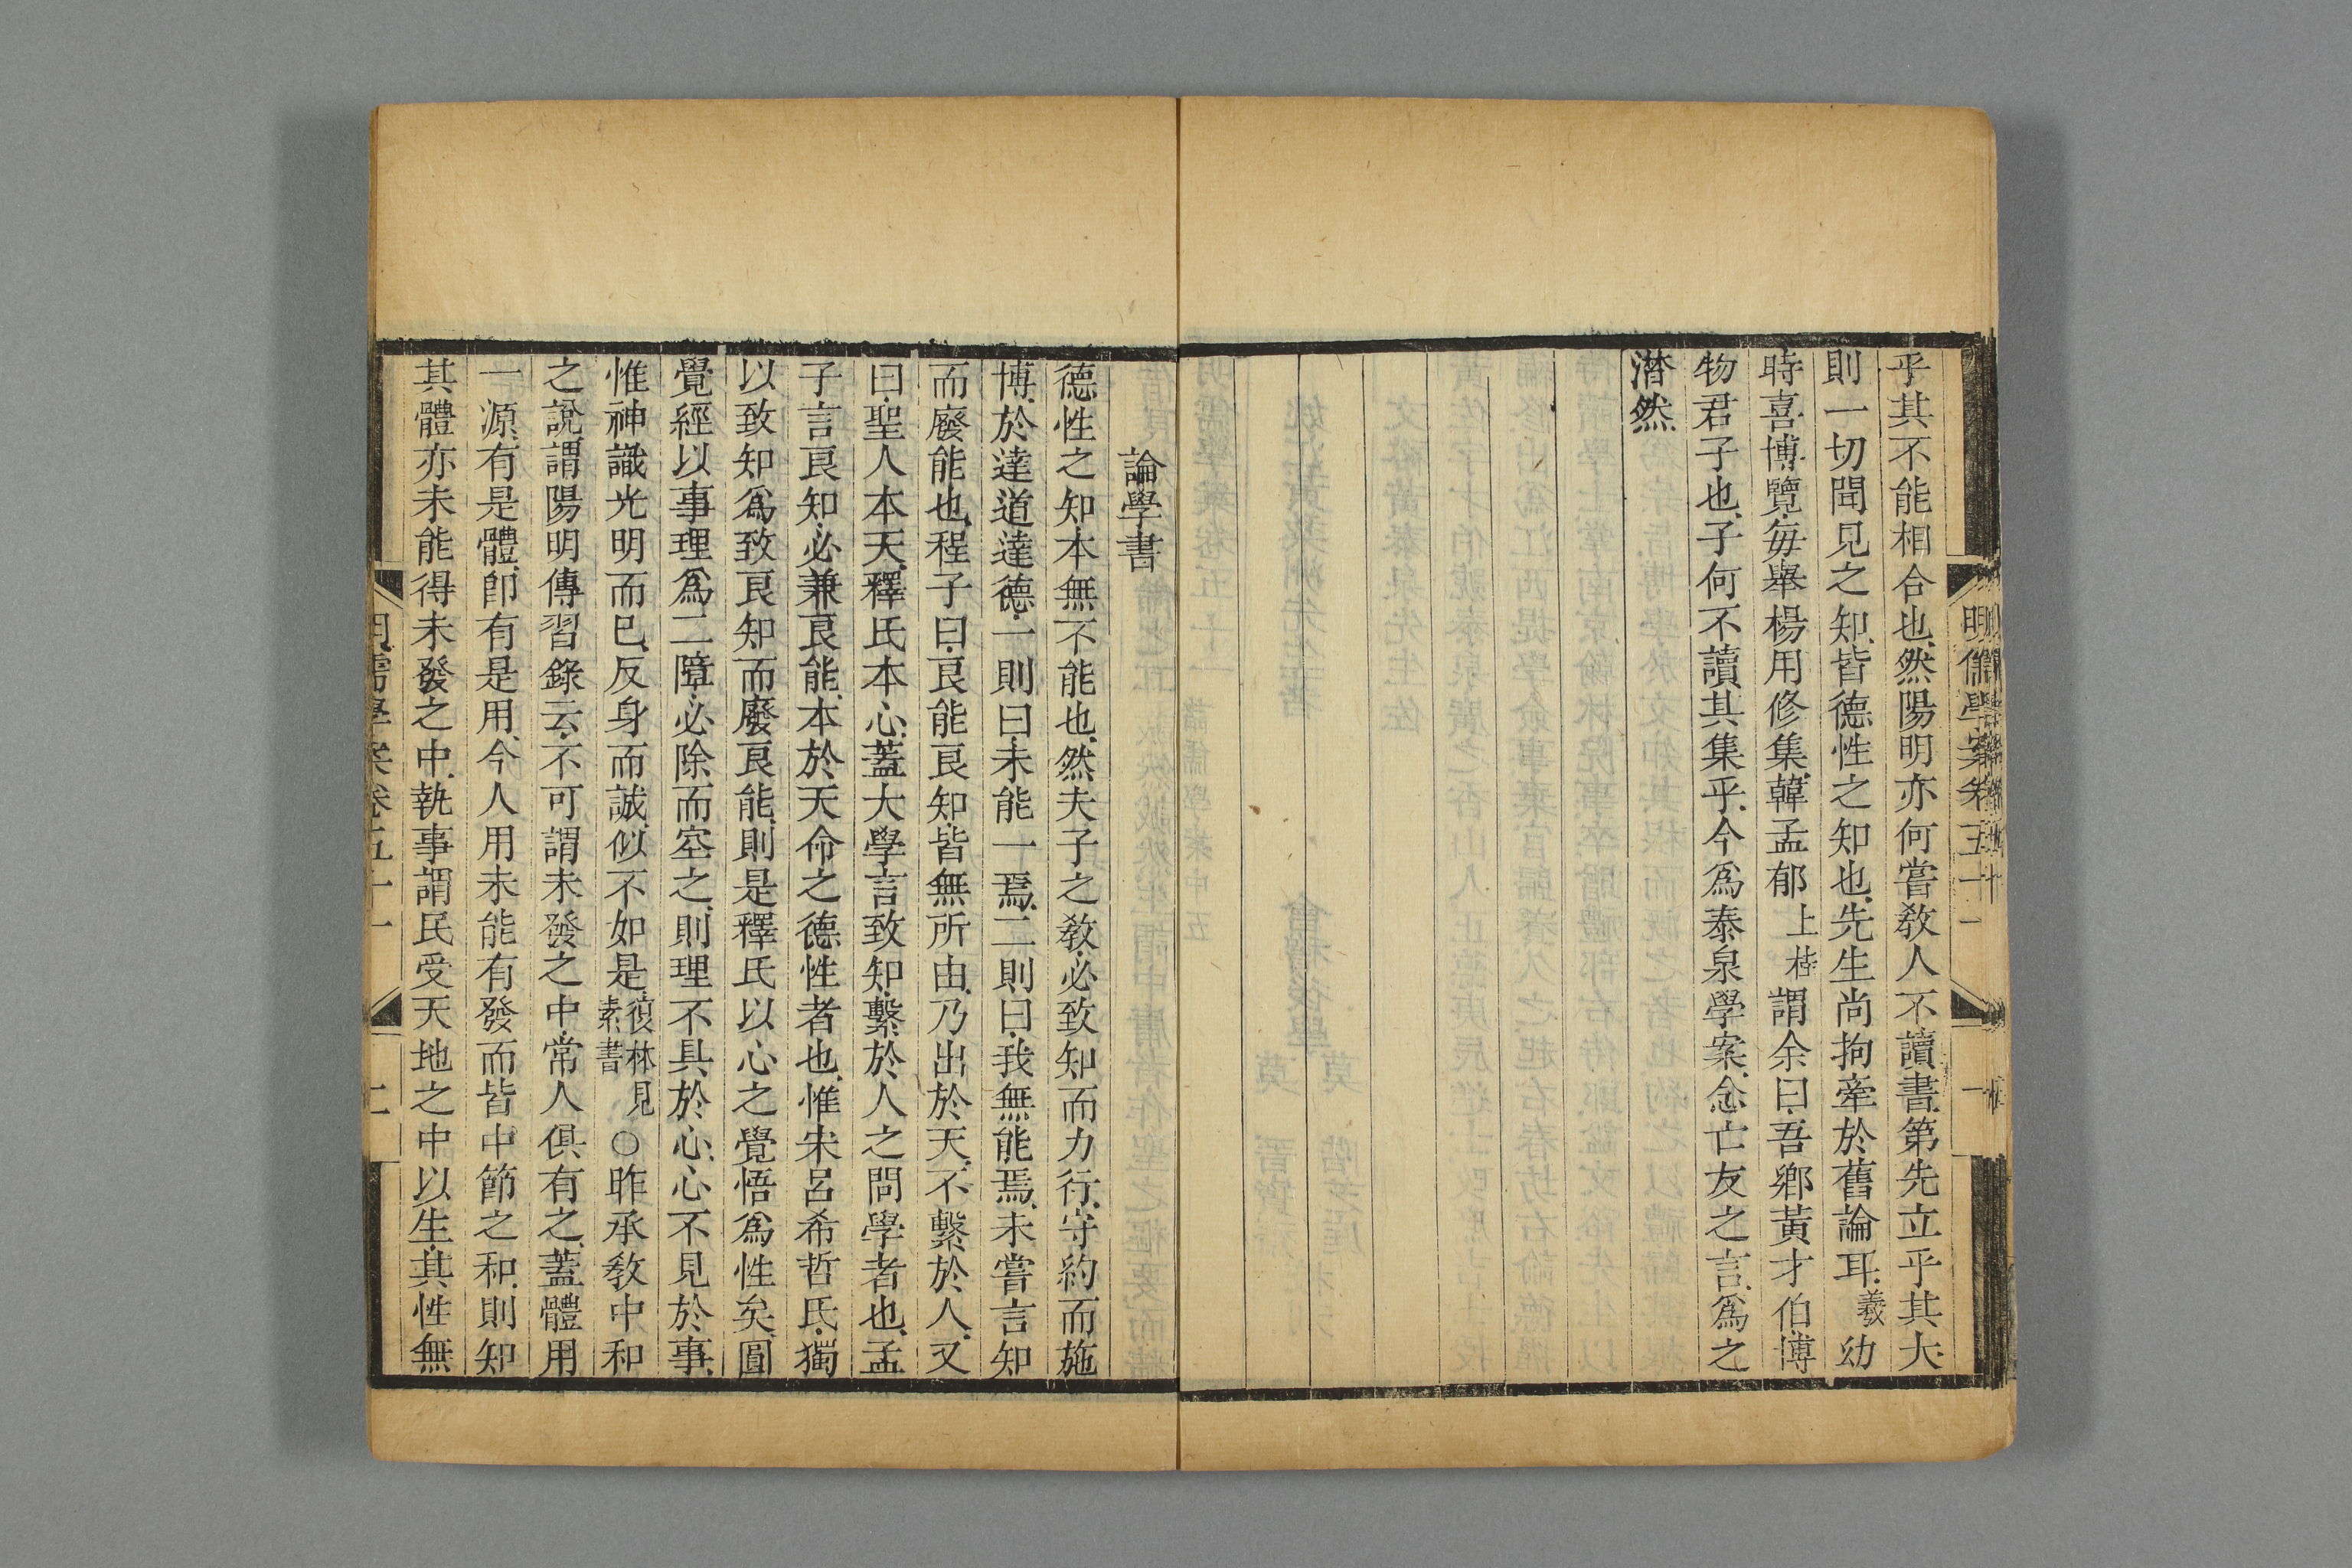 乎其不能相合也然陽明亦何嘗敎人不讀書第先立乎其大
則一切聞見之知皆德性之知也先生尚拘牽於舊論耳羲幼
時喜博覽每舉楊用修集韓孟郁上桂謂余曰吾鄉黃才伯博
物君子也子何不讀其集乎今爲泰泉學案念亡友之言爲之
潸然
論學書
德性之知本無不能也然夫子之敎必致知而力行守約而施
博於達道達德一則曰未能一焉二則曰我無能焉未嘗言知
而廢能也程子曰良能良知皆無所由乃出於天不繫於人又
曰聖人本天釋氏本心蓋大學言致知繫於人之問學者也孟
子言良知必兼良能本於天命之德性者也惟宋呂希哲氏獨
以致知爲致良知而廢良能則是釋氏以心之覺悟爲性矣圓
覺經以事理爲二障必除而空之則理不具於心心不見於事
惟神識光明而已反身而誠似不如是復林見素書○昨承敎中和
之說謂陽明傳習錄云不可謂未發之中常人俱有之蓋體用
一源有是體卽有是用今人用未能有發而皆中節之和則知
其體亦未能得未發之中執事謂民受天地之中以生其性無